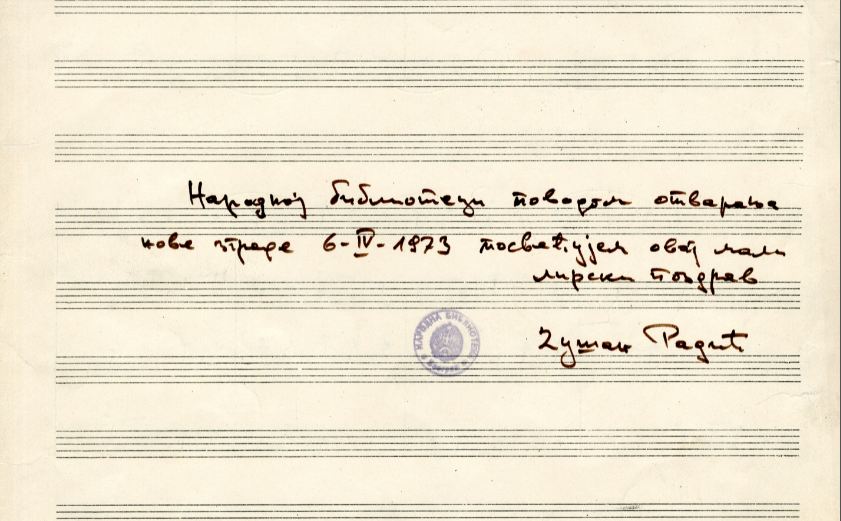 Народној библиотеци поводом отварања
нове зграде 6-IV-1973 посвећујем овај мали
лирски поздрав
Душан Радић
НАРОДНА БИБЛИОТЕКА